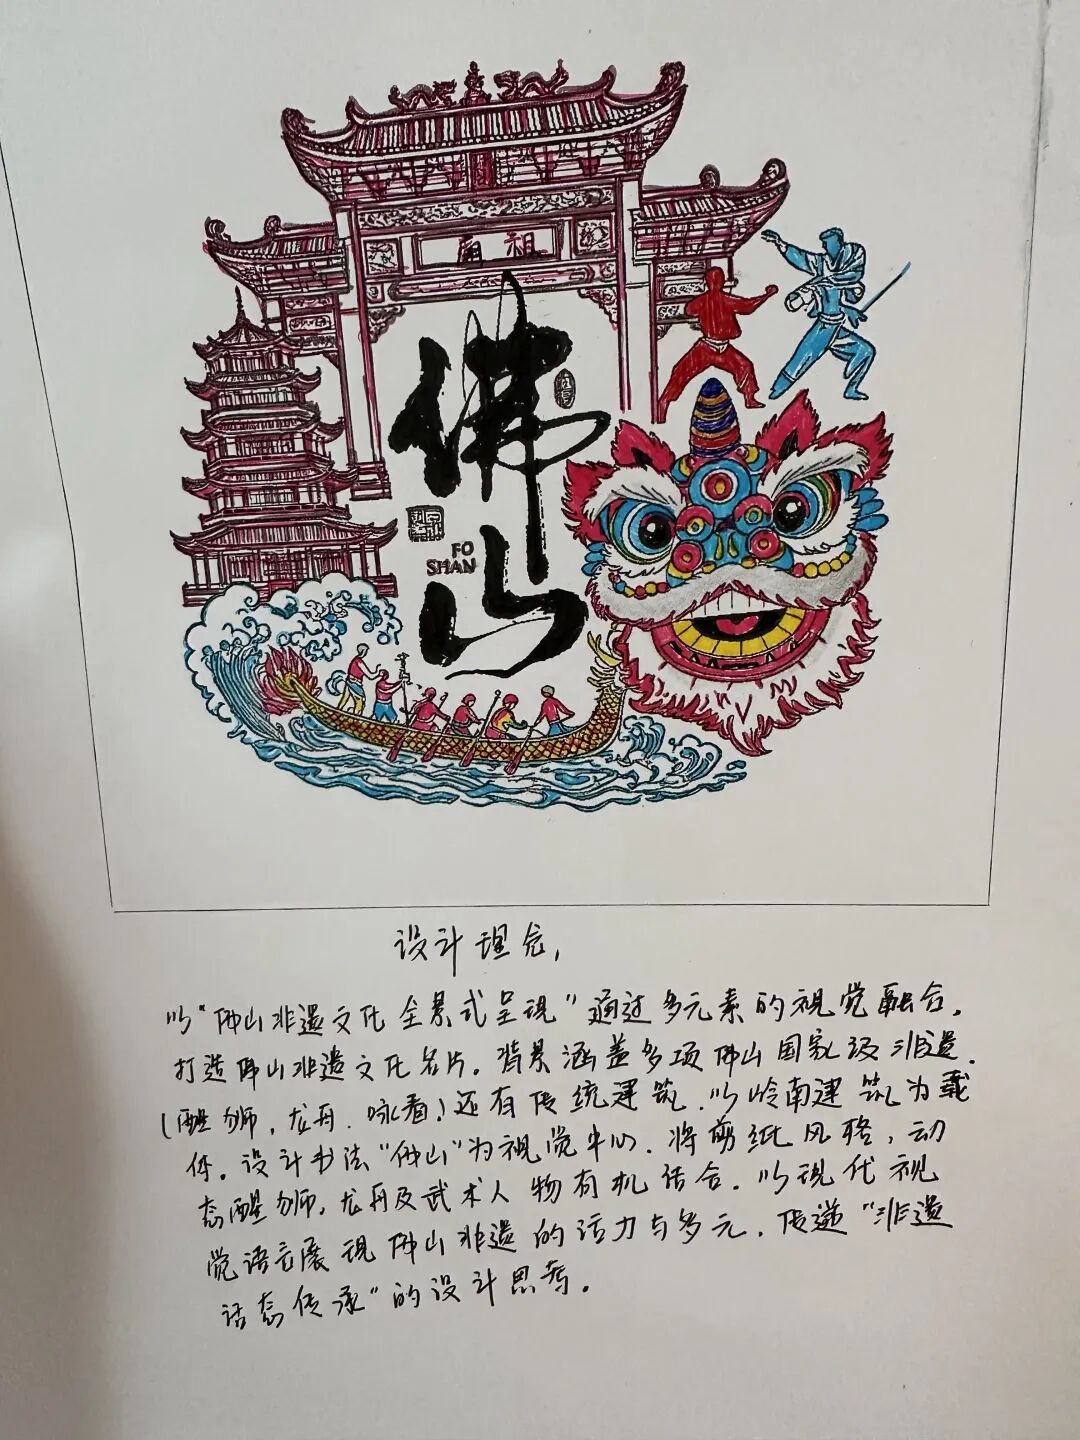 祖庙
佛山
FO
SHAN
设计理念,
以"佛山非遗文化全景式呈现"通过多元素的视觉融合.
打造佛山非遗文化名片.背景涵盖多项佛山国家级非遗.
(醒狮,龙舟.咏春)还有传统建筑.以岭南建筑为载
体.设计书法"佛山"为视觉中心.将剪纸风格,动
态醒狮,龙舟及武术人物有机结合.以现代视
觉语言展现佛山非遗的活力与多元.传递"非遗
活态传承"的设计思考。